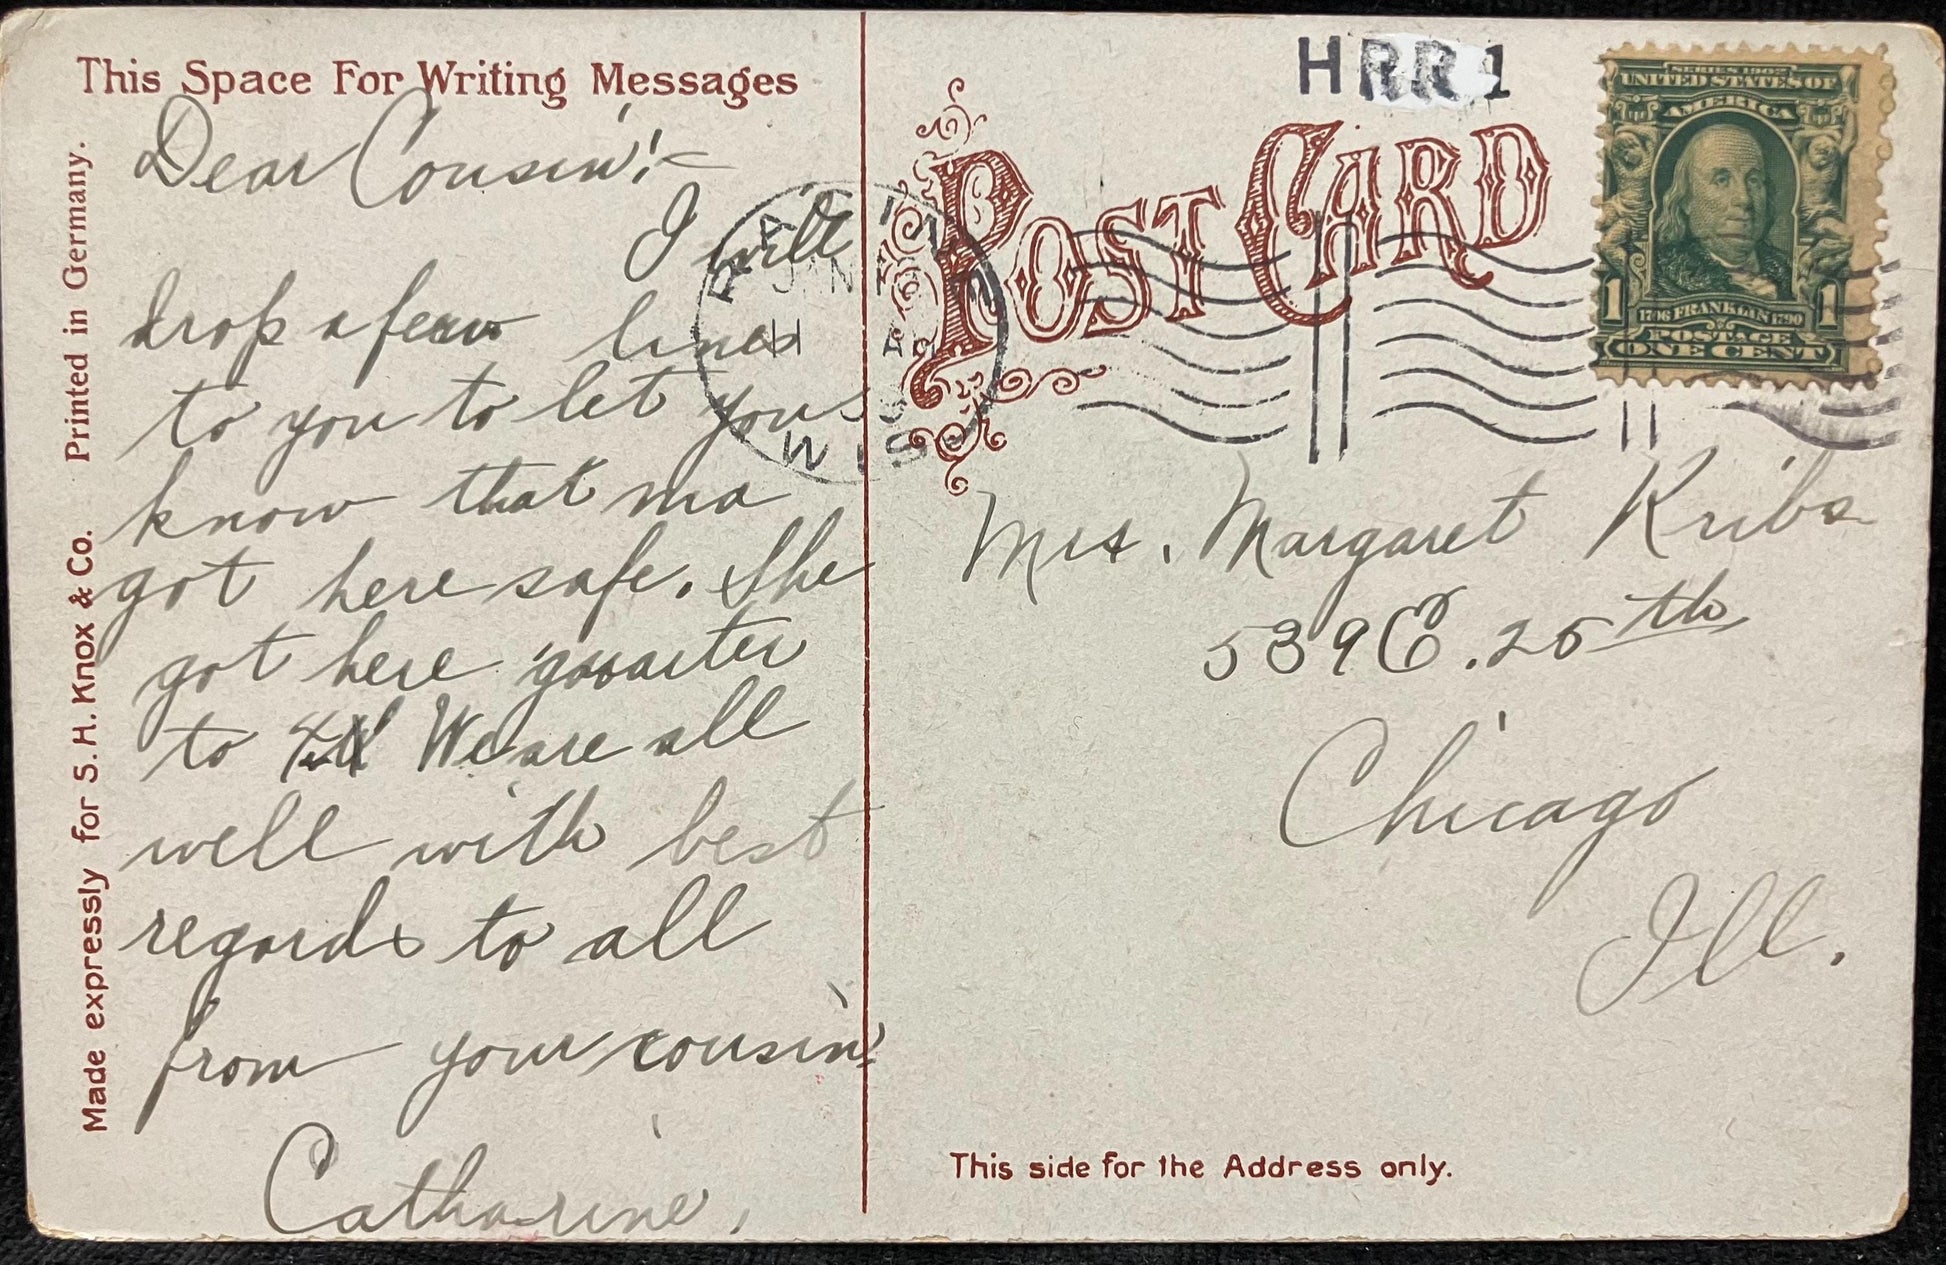 This Space For Writing Messages
Dear Cousin!-
I will
drop a few lines
to you to let you
know that ma
got here safe. She
got here quarter
to We are all
well with best
regards to all
from your cousin
Catharine.
Made expressly for S. H. Knox & Co. Printed in Germany.
POST CARD
H RR 1
RACINE
JAN
11 AM
WIS
SERIES 1902
UNITED STATES OF
AMERICA
1 1
1706 FRANKLIN 1790
POSTAGE
ONE CENT
Mrs. Margaret Kribs
539 E. 25th
Chicago
Ill.
This side for the Address only.